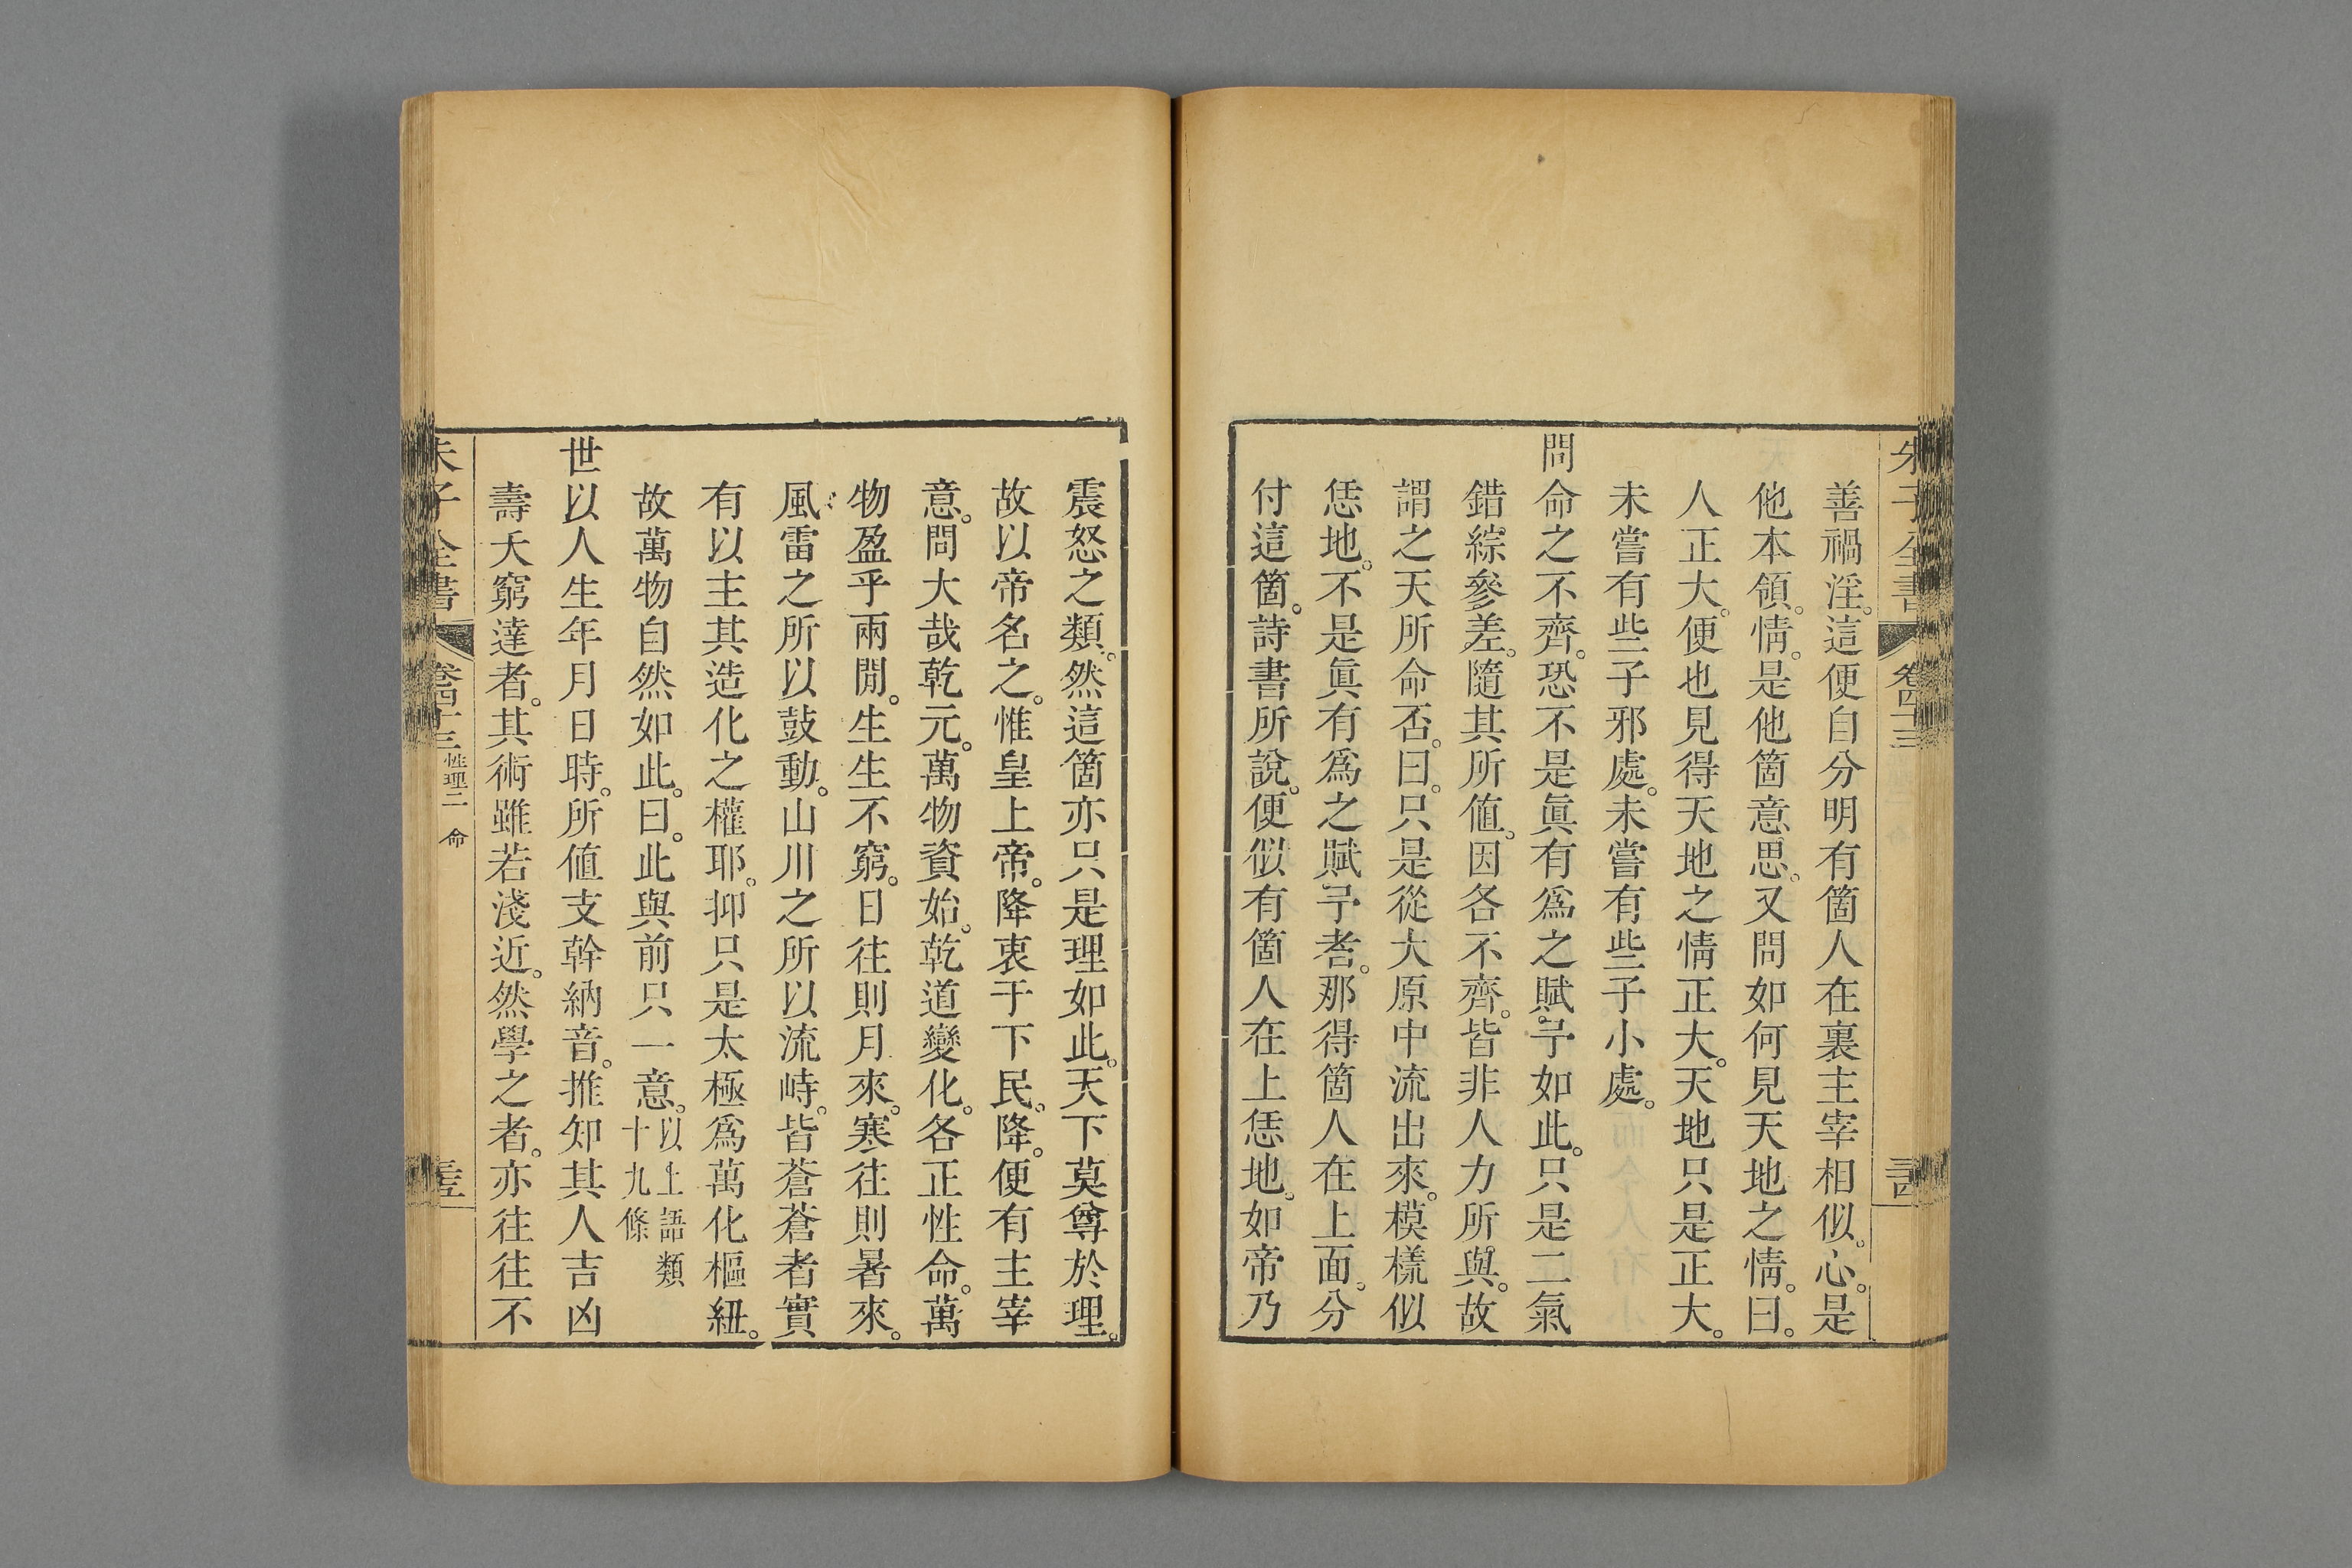 朱子全書 卷四十三 三十四
善禍淫。這便自分明有箇人在裏主宰相似。心。是
他本領。情。是他箇意思。又問如何見天地之情。曰。
人正大。便也見得天地之情正大。天地只是正大。
未嘗有些子邪處。未嘗有些子小處。
問命之不齊。恐不是眞有爲之賦予如此。只是二氣
錯綜參差。隨其所値。因各不齊。皆非人力所與。故
謂之天所命否。曰。只是從大原中流出來。模樣似
恁地。不是眞有爲之賦予者。那得箇人在上面。分
付這箇。詩書所說。便似有箇人在上恁地。如帝乃
震怒之類。然這箇亦只是理如此。天下莫尊於理。
故以帝名之。惟皇上帝。降衷于下民。降。便有主宰
意。問大哉乾元。萬物資始。乾道變化。各正性命。萬
物盈乎兩閒。生生不窮。日往則月來。寒往則暑來。
風雷之所以鼓動。山川之所以流峙。皆蒼蒼者實
有以主其造化之權耶。抑只是太極爲萬化樞紐。
故萬物自然如此。曰。此與前只一意。以上語類
十九條
世以人生年月日時。所値支幹納音。推知其人吉凶
壽夭窮達者。其術雖若淺近。然學之者。亦往往不
朱子全書 卷四十三 性理二 命 三十五